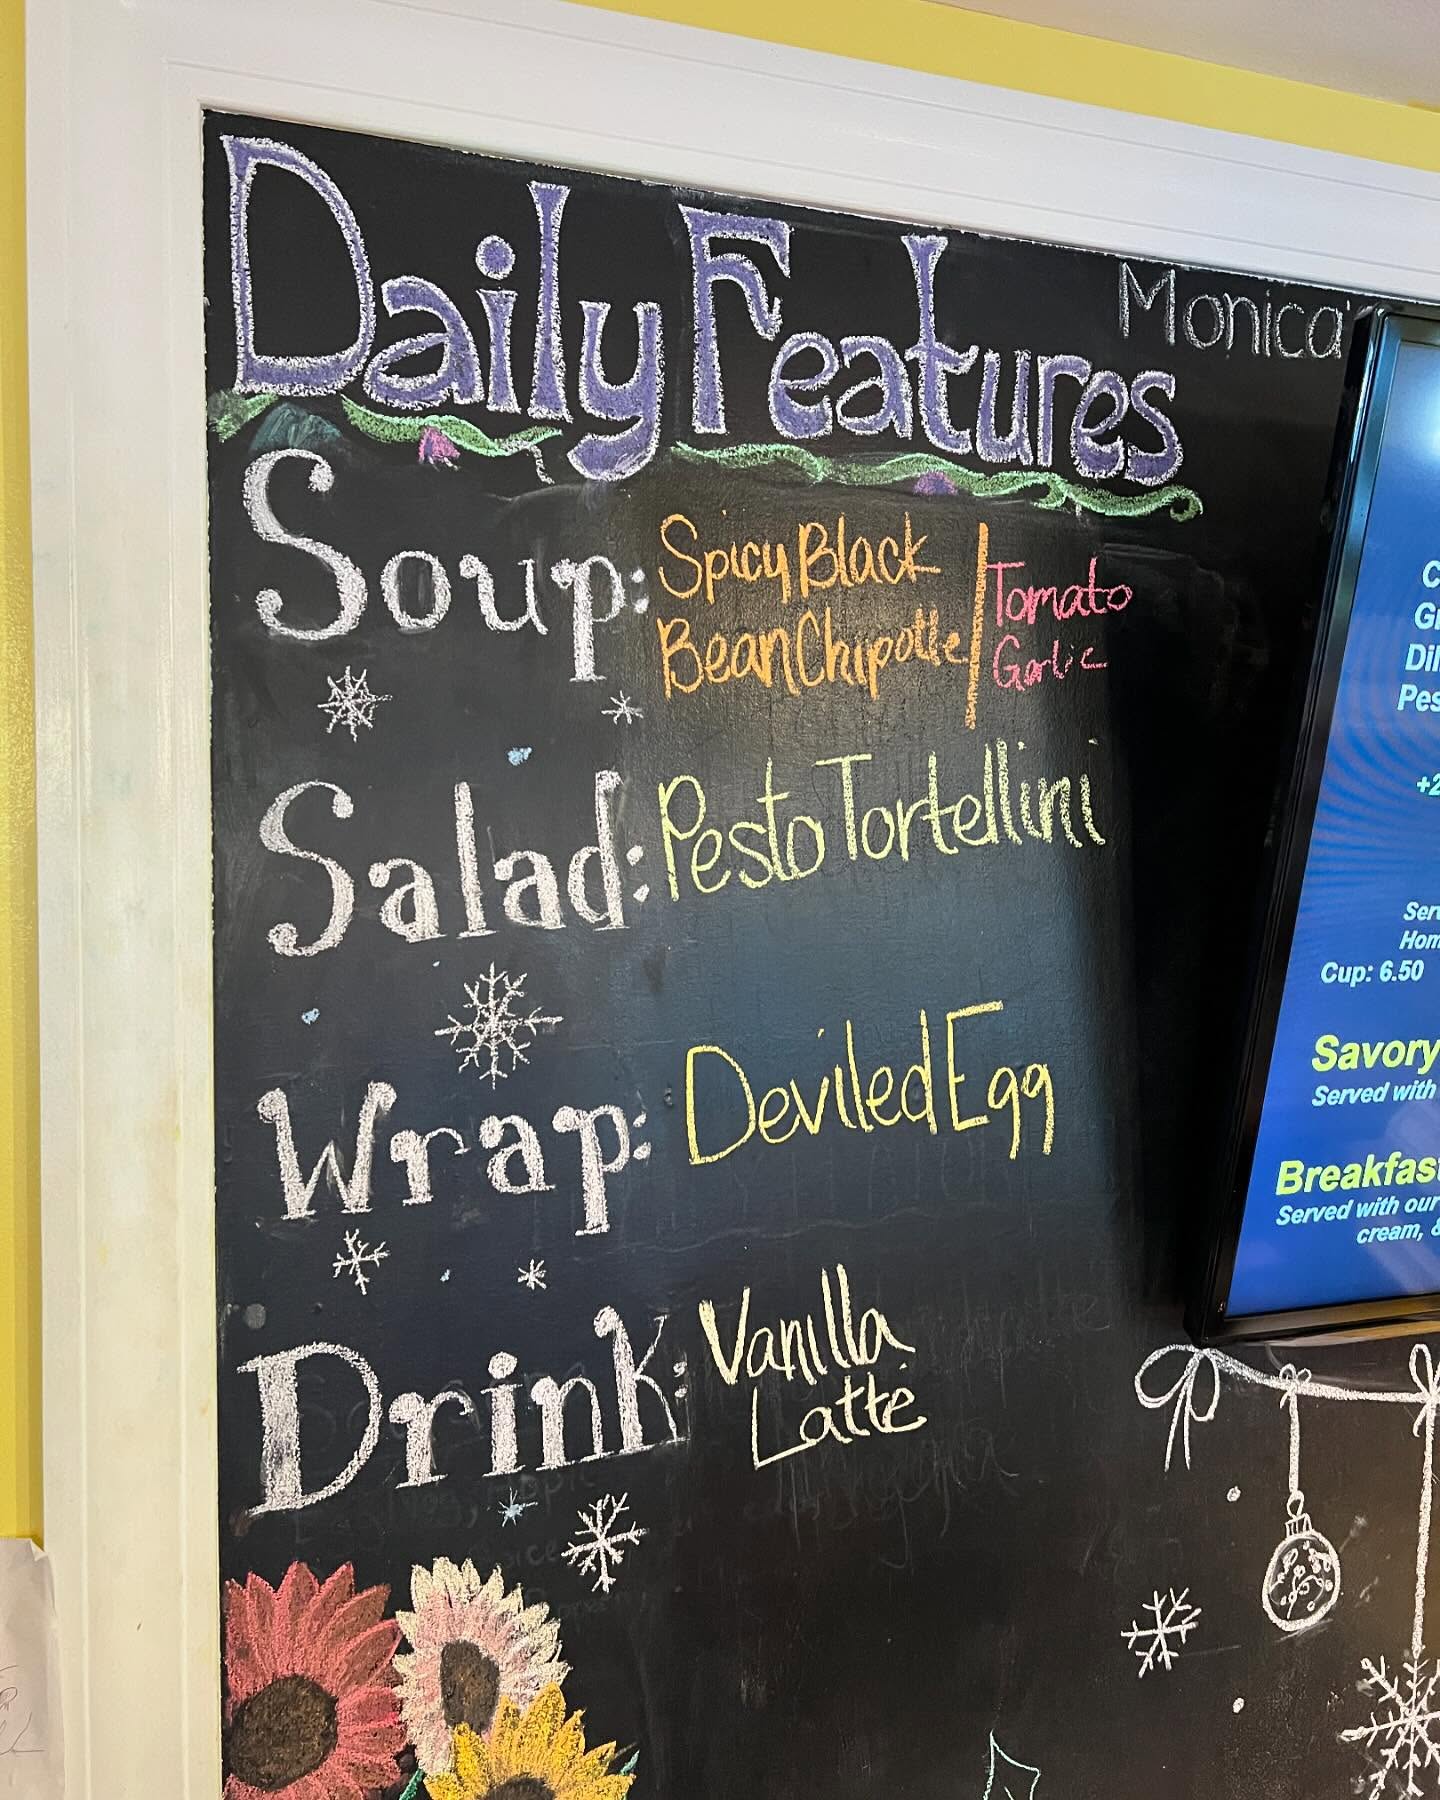 Daily Features
Monica'
Soup: Spicy Black
Bean Chipotle / Tomato
Garlic
Salad: Pesto Tortellini
Wrap: Deviled Egg
Drink: Vanilla
Latte
+2
Cup: 6.50
Savory
Served with
Breakfast
Served with our
cream, &